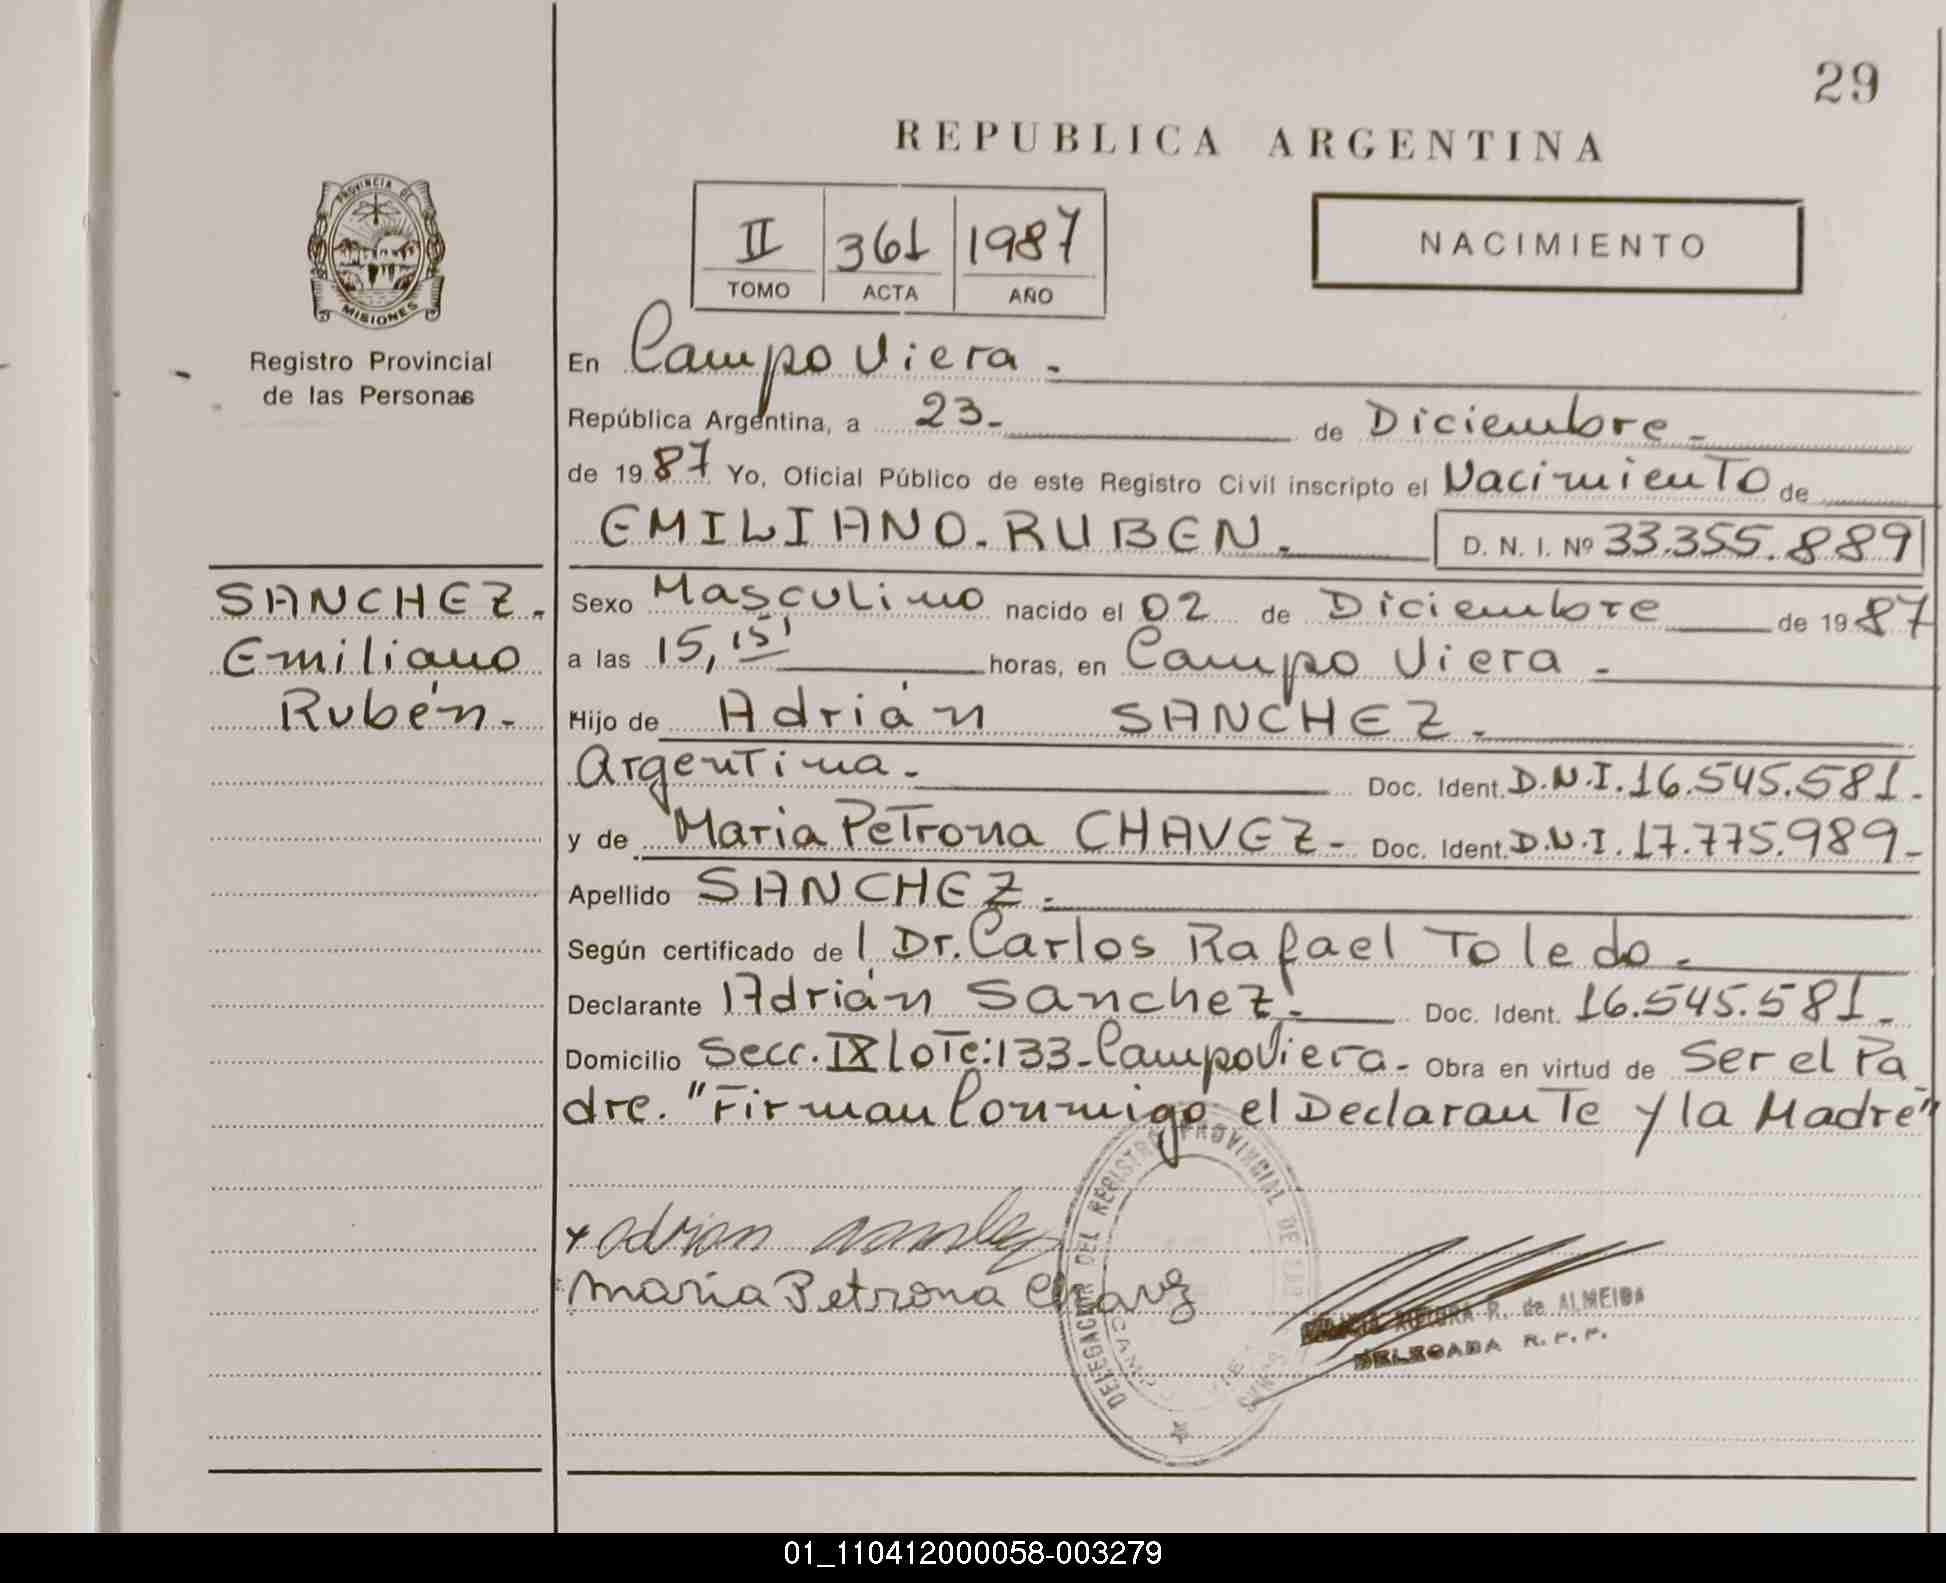 29
REPUBLICA ARGENTINA
II 361 1987
TOMO ACTA AÑO
NACIMIENTO
PROVINCIA DE
MISIONES
Registro Provincial
de las Personas
SANCHEZ.
Emiliano
Rubén.-
En Campo Viera.
República Argentina, a 23- de Diciembre-
de 1987 Yo, Oficial Público de este Registro Civil inscripto el Nacimiento de
EMILIANO. RUBEN. D. N. I. Nº 33.355.889
Sexo Masculino nacido el 02 de Diciembre de 1987
a las 15,15' horas, en Campo Viera-
Hijo de Adrián SANCHEZ.
Argentina. Doc. Ident. D.N.I. 16.545.581.
y de Maria Petrona CHAVEZ- Doc. Ident. D.N.I. 17.775.989-
Apellido SANCHEZ.
Según certificado de l Dr. Carlos Rafael Toledo.
Declarante Adrián Sanchez. Doc. Ident. 16.545.581-
Domicilio Secc. IX Lote: 133-Campo Viera- Obra en virtud de Ser el Pa
dre. "Firman Conmigo el Declarante y la Madre"
DELEGACION DEL REGISTRO PROVINCIAL DE LAS
adrian
Maria Petrona Chavz
R. de ALMEIDA
DELEGADA R. P. P.
01_110412000058-003279